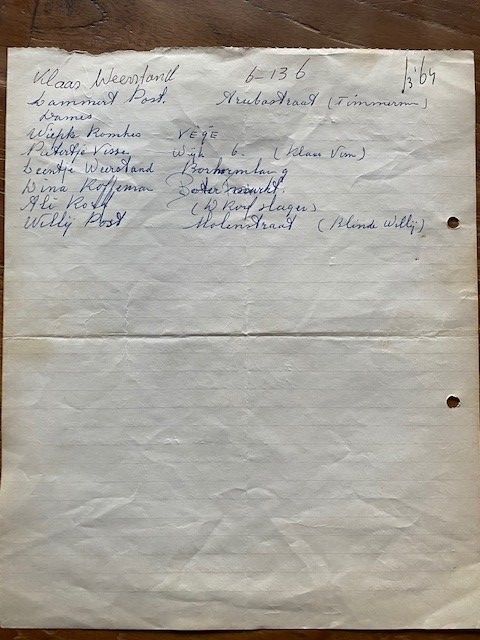 Klaas Weerstand 6-13 6 /3'64
Lammert Post. Arubastraat (Timmerman)
Dames
Wiepk Romkes VéGé
Pietertje Visse Wijk 6. (Klaas Vim)
Deentje Weerstand
Dina Koffeman Botermarkt.
Ali Kost (D Korf slager)
Willij Post Molenstraat (Blinde Willij)